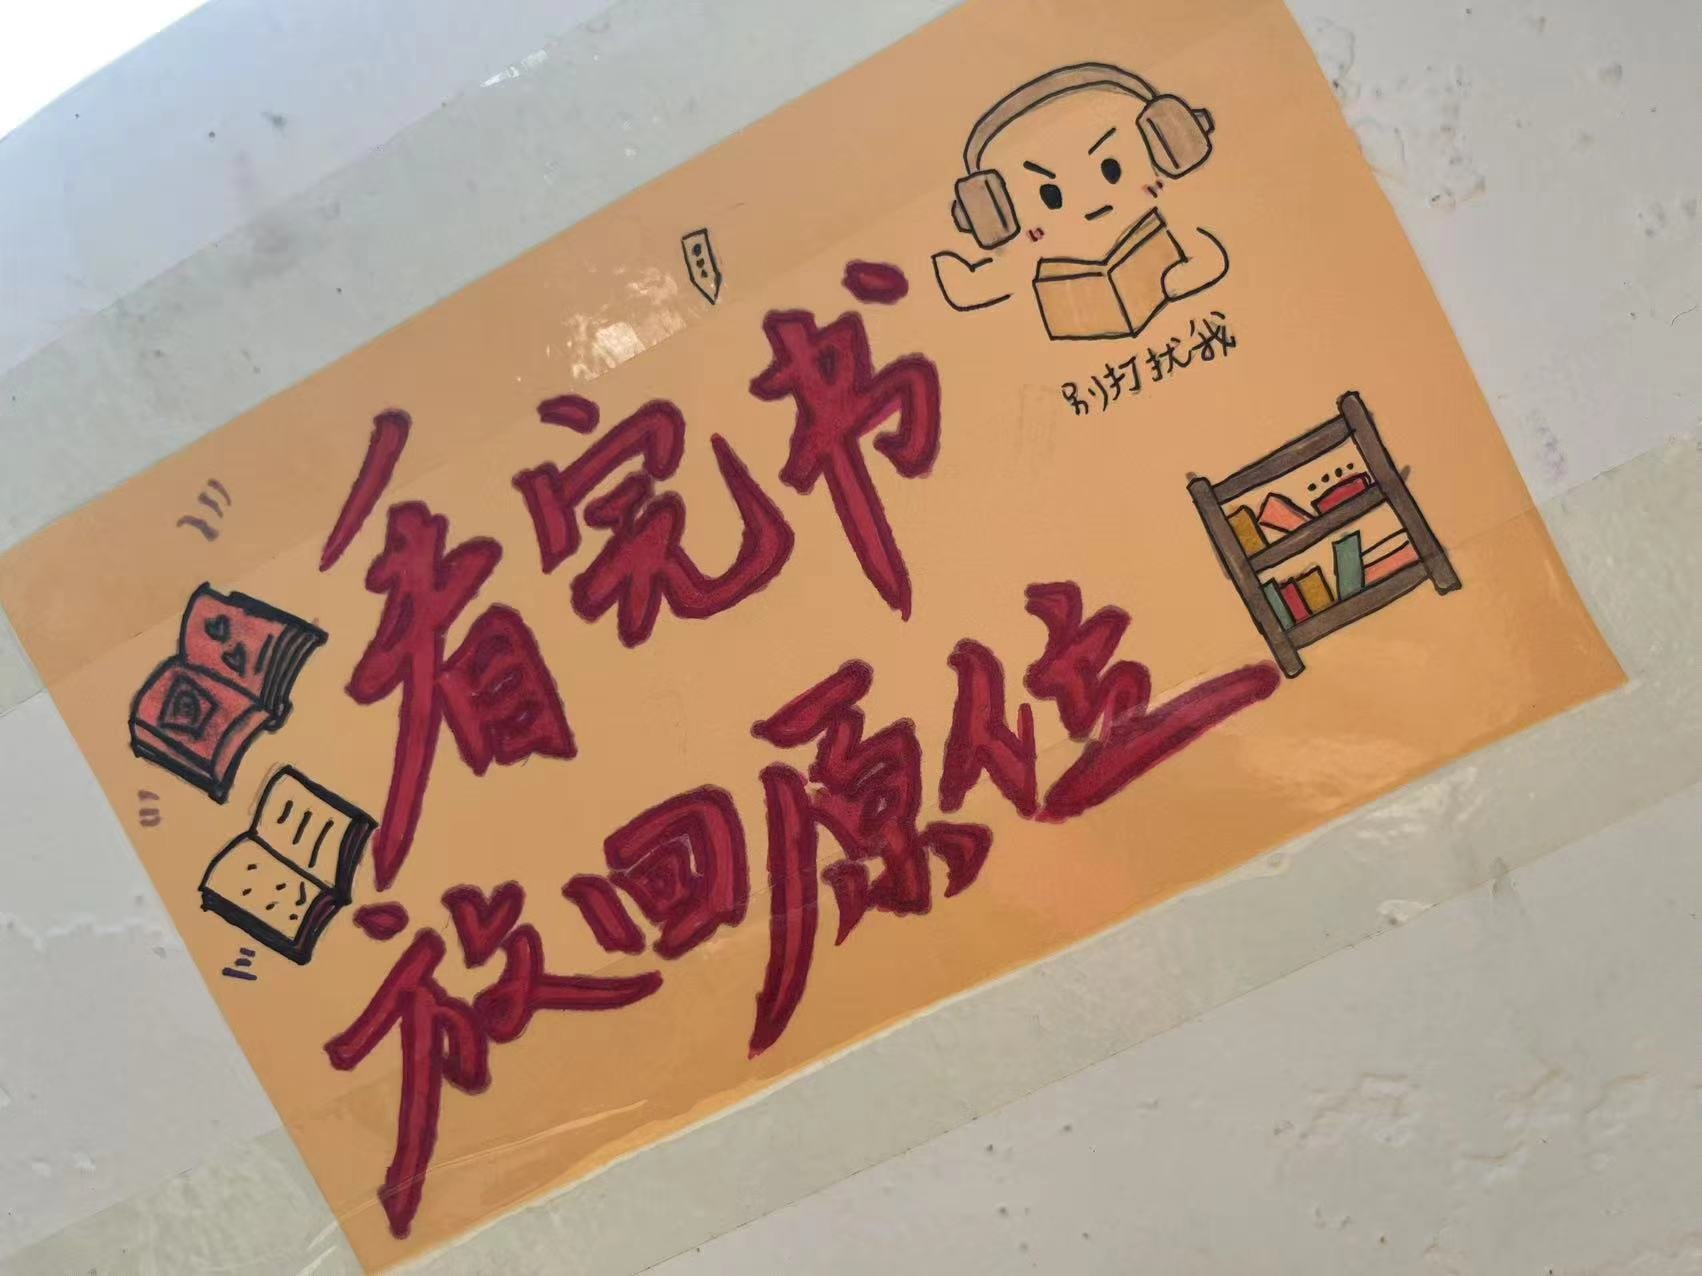 看完书
放回原位
别打扰我